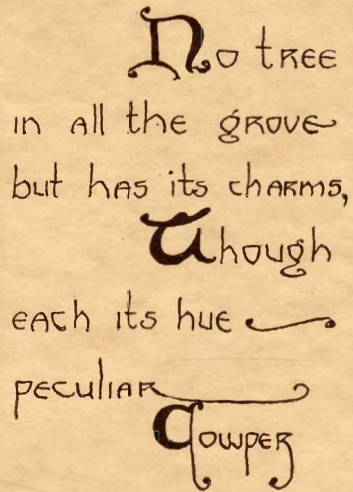 No tree
in all the grove
but has its charms,
Though
each its hue
peculiar
Cowper